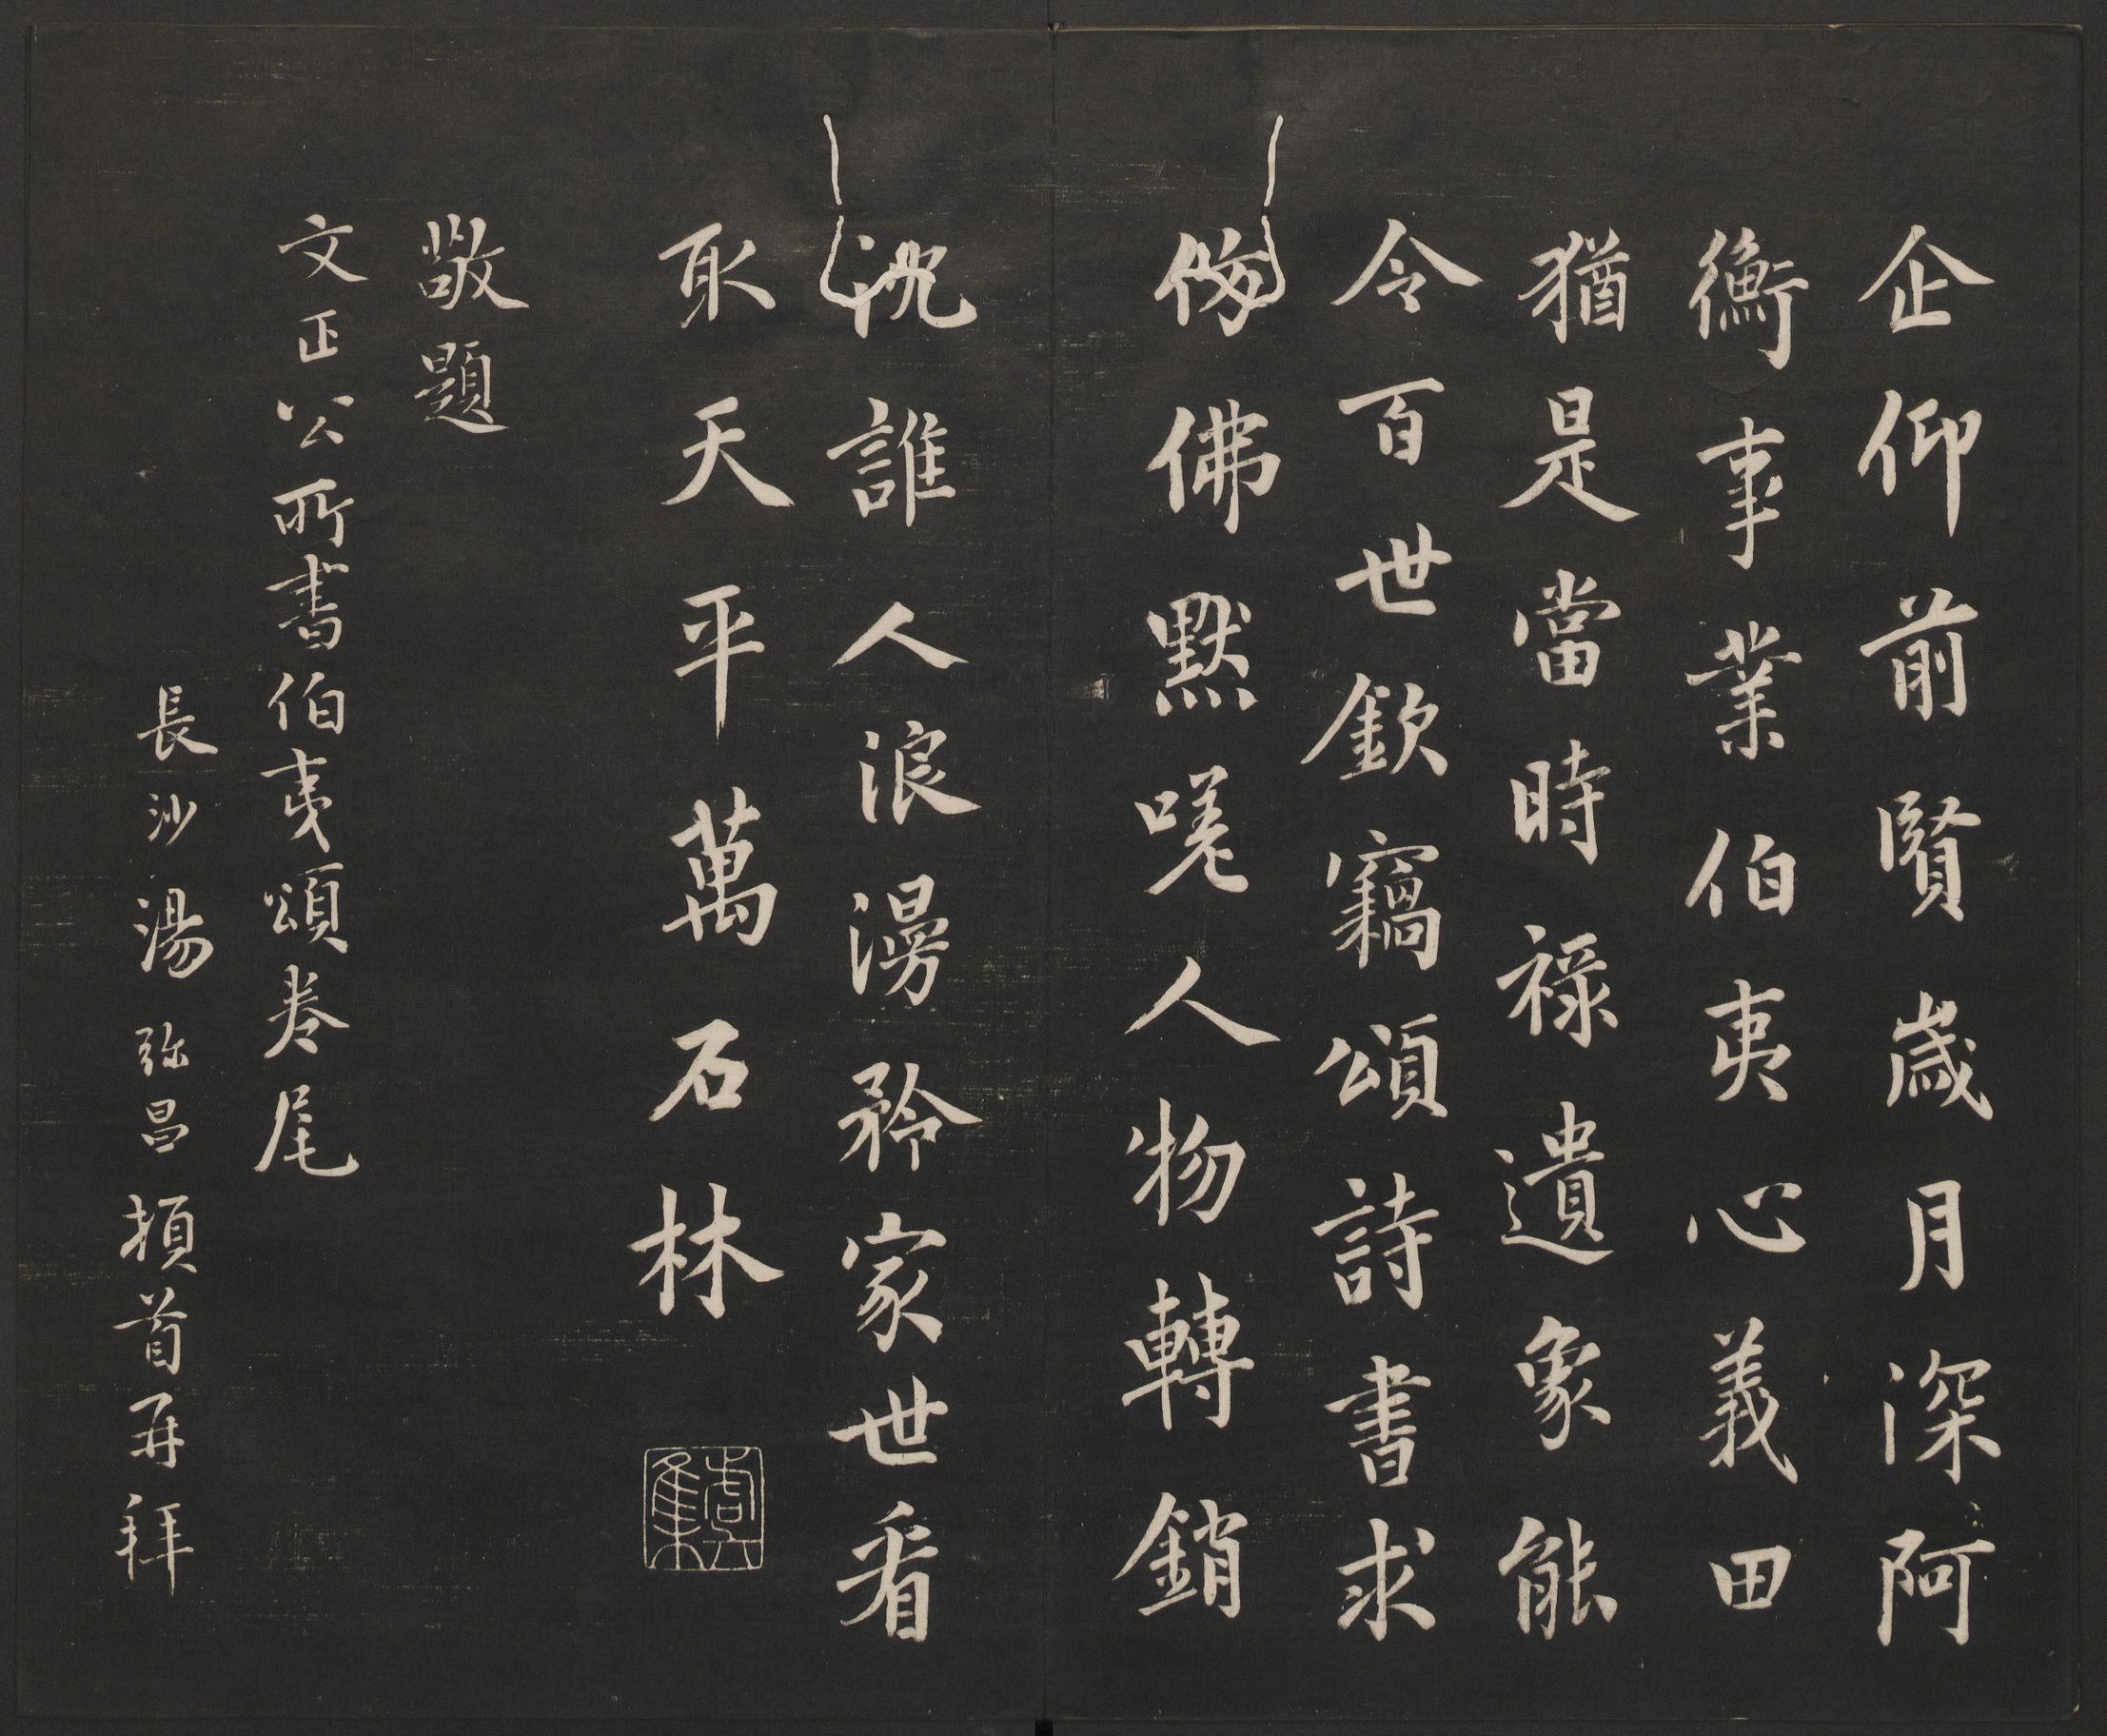 企仰前賢歲月深阿
衡事業伯夷心義田
猶是當時祿遺象能
令百世欽竊頌詩書求
仿佛默嗟人物轉銷
沈誰人浪漫矜家世看
取天平萬石林
敬題
文正公所書伯夷頌卷尾
長沙湯弥昌頓首再拜